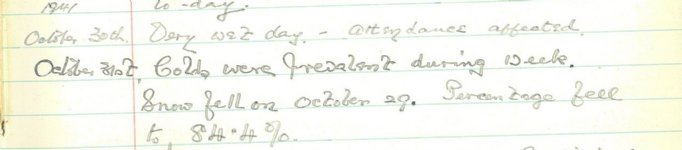 1941 to-day.
October 30th. Very wet day. - Attendance affected.
October 31st. Colds were prevalent during week.
Snow fell on October 29. Percentage fell
to 84.4%.